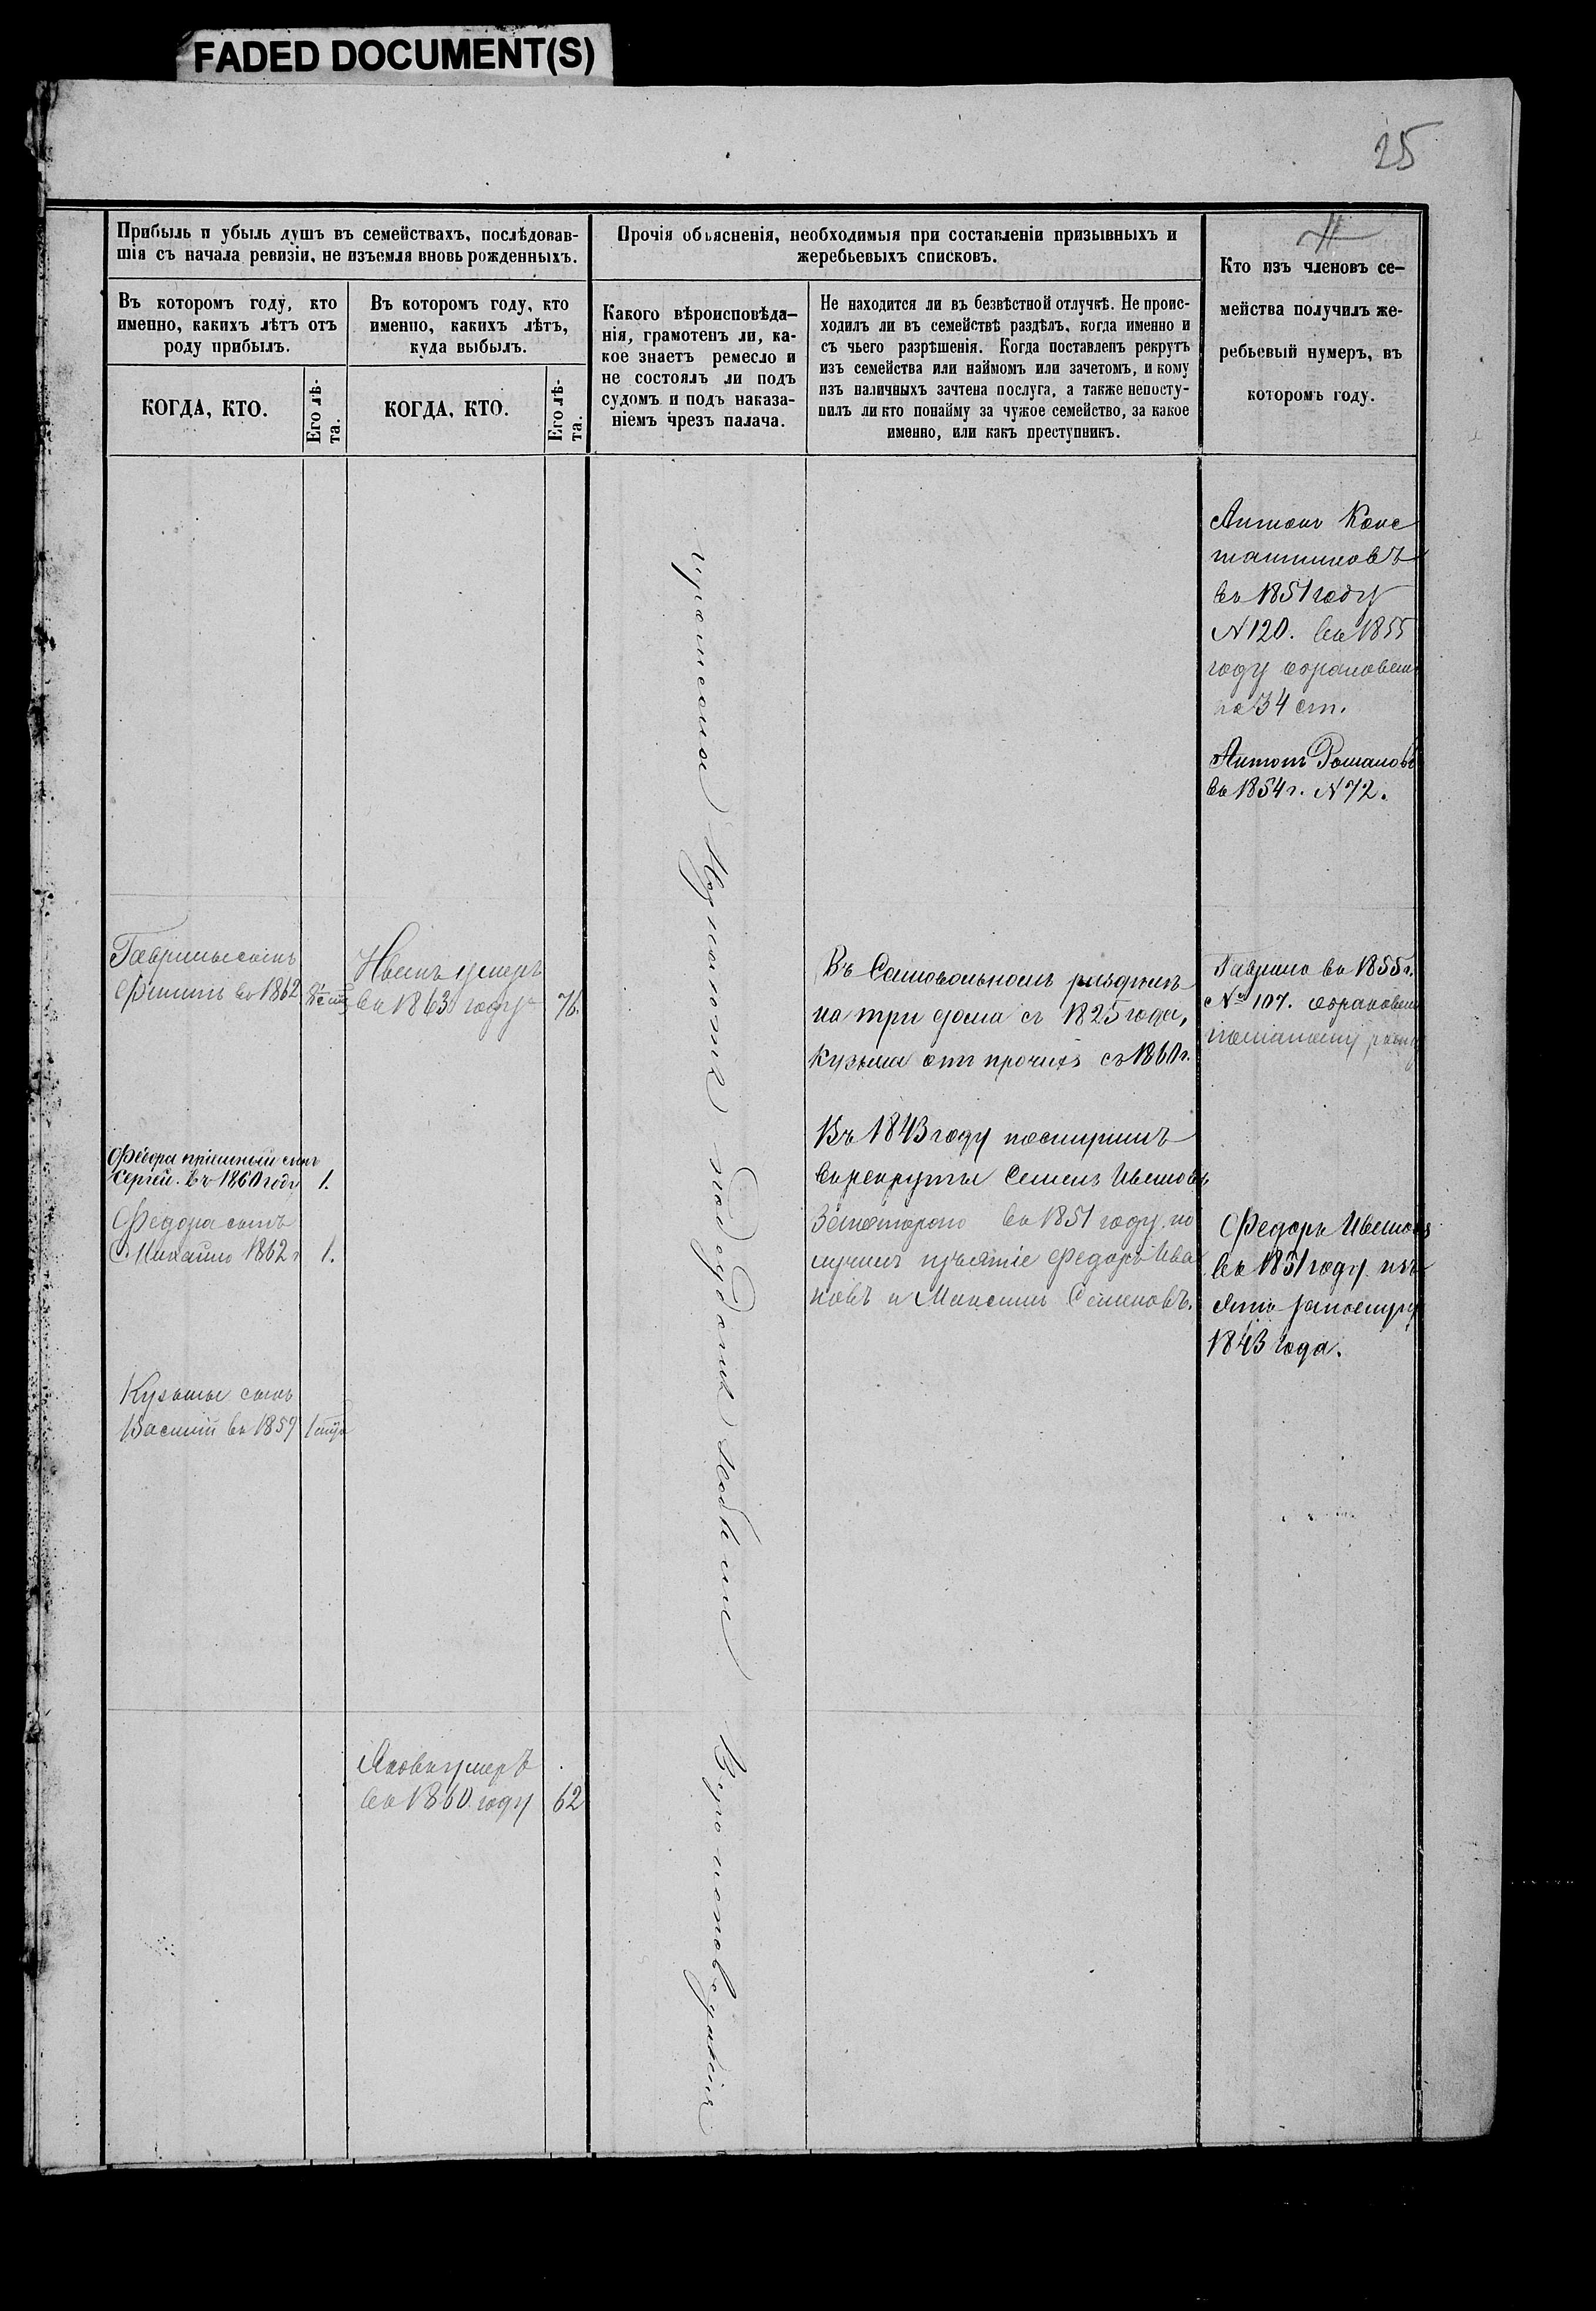 FADED DOCUMENT(S)
25
Прибыль и убыль душъ въ семействахъ, послѣдовав-
шія съ начала ревизіи, не изъемля вновь рожденныхъ.
Въ которомъ году, кто
именно, какихъ лѣтъ отъ
роду прибылъ.
КОГДА, КТО.
Его лѣ-
та.
Въ которомъ году, кто
именно, какихъ лѣтъ,
куда выбылъ.
КОГДА, КТО.
Его лѣ-
та.
Прочія объясненія, необходимыя при составленіи призывныхъ и
жеребьевыхъ списковъ.
Какого вѣроисповѣда-
нія, грамотенъ ли, ка-
кое знаетъ ремесло и
не состоялъ ли подъ
судомъ и подъ наказа-
ніемъ чрезъ палача.
Не находится ли въ безвѣстной отлучкѣ. Не проис-
ходилъ ли въ семействѣ раздѣлъ, когда именно и
съ чьего разрѣшенія. Когда поставленъ рекрутъ
изъ семейства или наймомъ или зачетомъ, и кому
изъ наличныхъ зачтена послуга, а также непосту-
пилъ ли кто понайму за чужое семейство, за какое
именно, или какъ преступникъ.
Кто изъ членовъ се-
мейства получилъ же-
ребьевый нумеръ, въ
которомъ году.
Антонъ Конс
тантиновъ
въ 1851 году
N 120. въ 1855
году обракованъ
по 34 ст.
Антонъ Романовъ
въ 1854 г. N 72.
Гаврилы сынъ
Филипъ въ 1862
Иванъ умеръ
въ 1863 году
76.
Въ Самовольномъ раздѣлѣ
на три дома съ 1825 года,
Кузьма отъ прочихъ съ 1860 г.
Гаврило въ 1855 г.
№ 107. обракованъ
Федора пріемный сынъ
Сергѣй. Въ 1860 году
1.
Федора сынъ
Михайло 1862 г
1.
Въ 1843 году поступилъ
въ рекруты Семенъ Ивановъ
за котораго въ 1851 году по
лучилъ изъятіе Федоръ Ива
новъ и Максимъ Семеновъ.
Федоръ Ивановъ
въ 1851 году изъ
ятъ за послугу
1843 года.
Кузьмы сынъ
Василій въ 1857
Яковъ умеръ
въ 1860 году
62
Вѣроисповѣданія